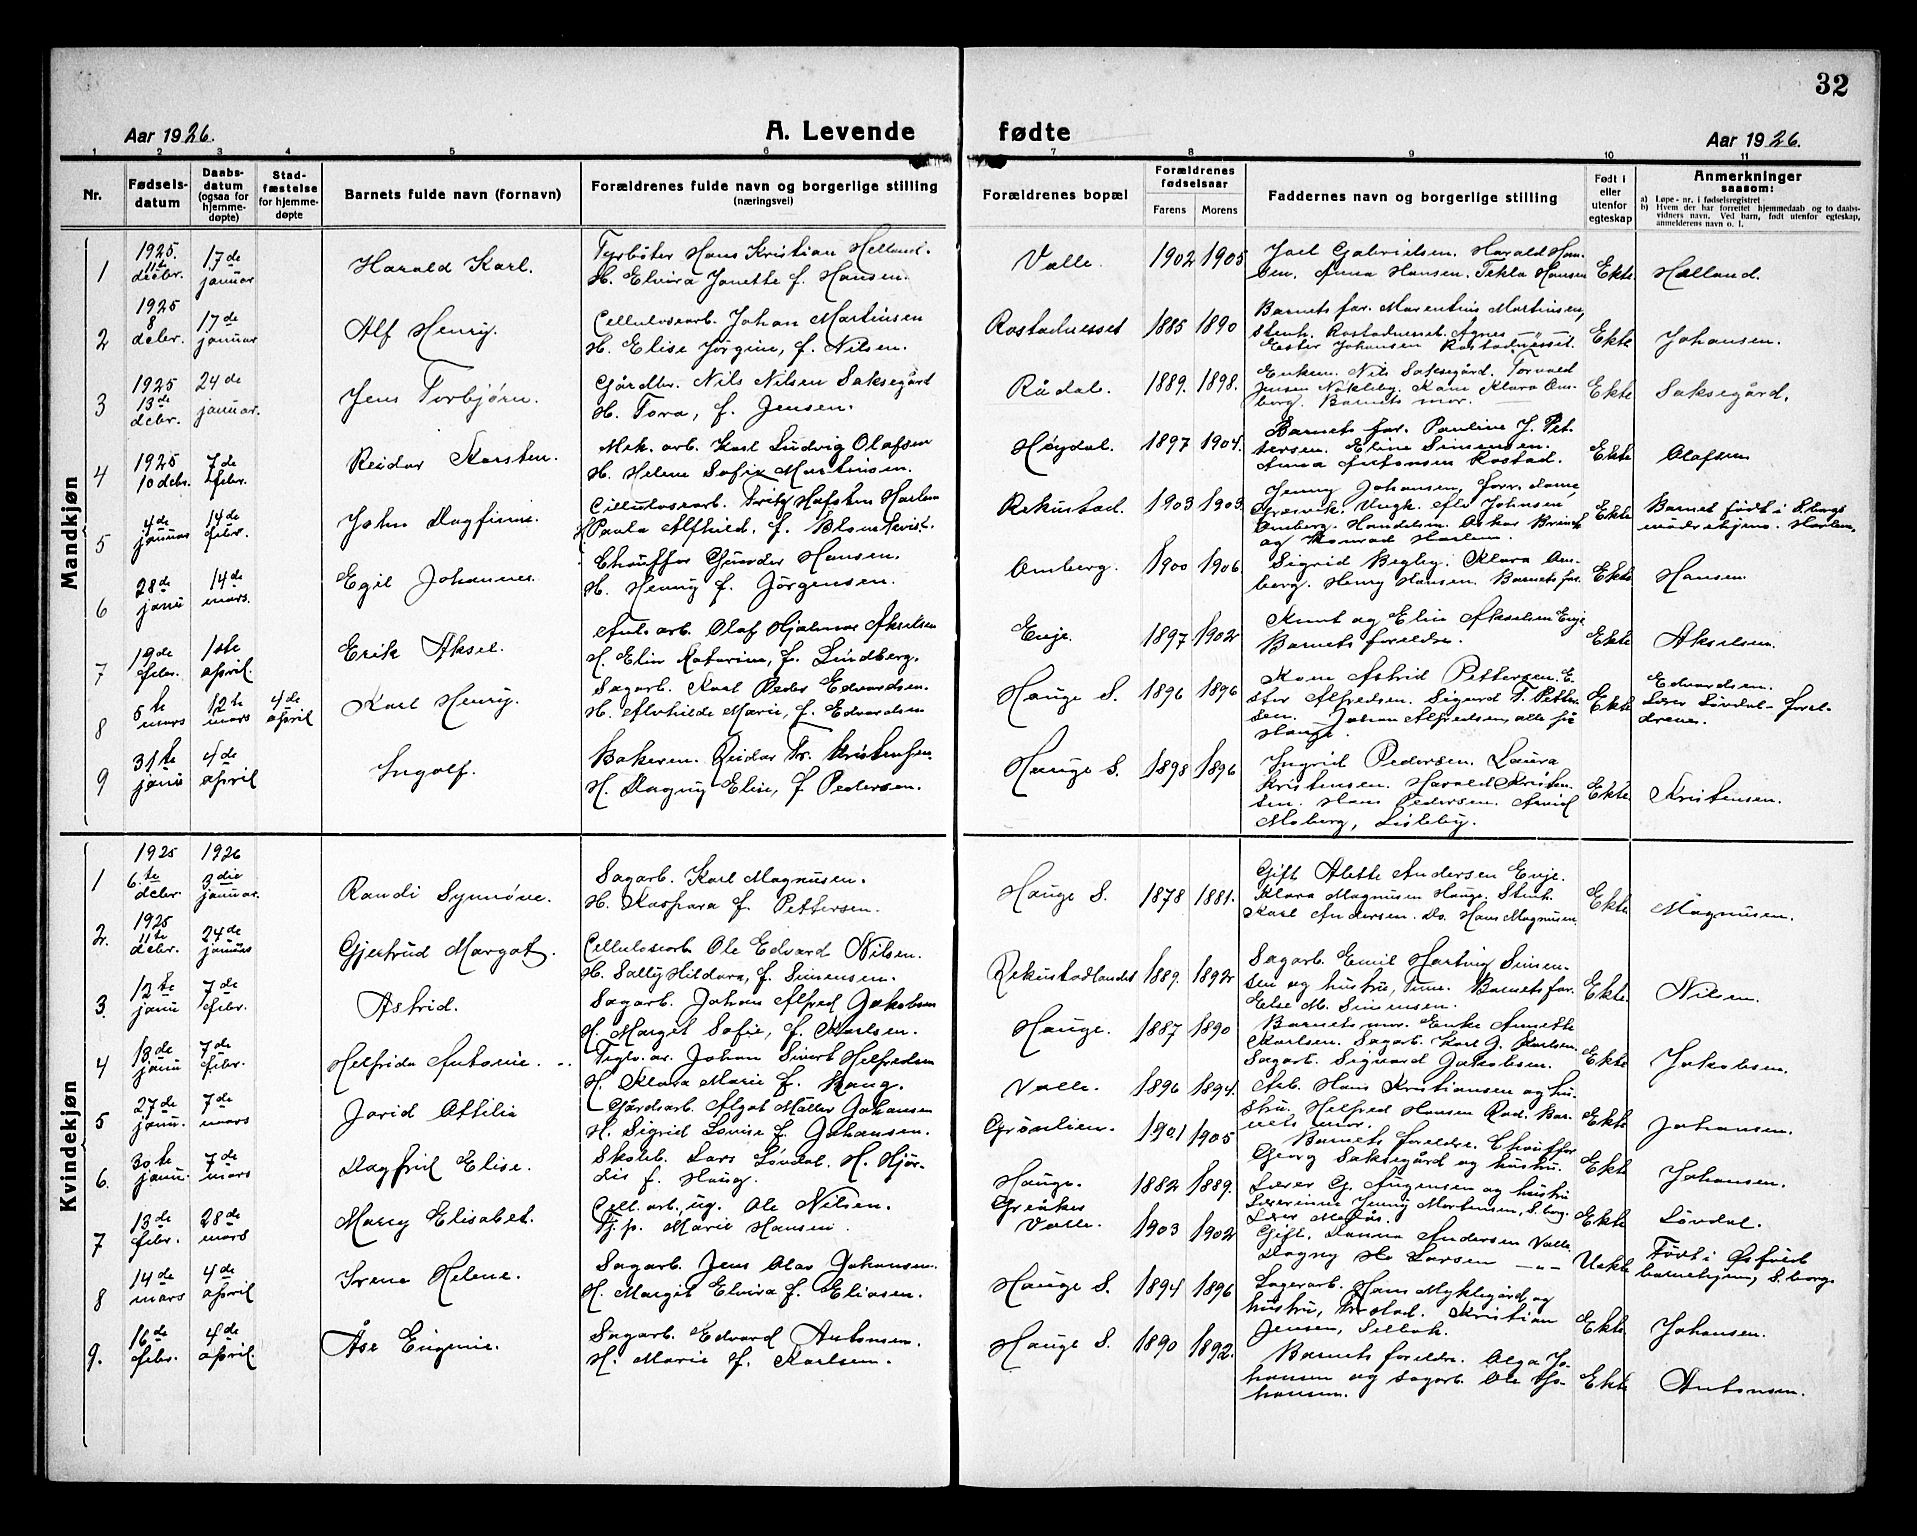 32
Aar 1926. A. Levende fødte Aar 1926.
1 2 3 4 5 6 7 8 9 10 11
Nr. Fødsels-datum Daabs-datum (ogsaa for hjemme-døpte) Stad-fæstelse for hjemme-døpte Barnets fulde navn (fornavn) Forældrenes fulde navn og borgerlige stilling (næringsvei) Forældrenes bopæl Forældrenes fødselsaar Farens Morens Faddernes navn og borgerlige stilling Født i eller utenfor egteskap Anmerkninger saasom:
a) Løpe-nr. i fødselsregistret
b) Hvem der har forrettet hjemmedaab og to daabsvidners navn. Ved barn, født utenfor egteskap, anmelderens navn o. l.
Mandkjøn
1 1925. 11te decbr. 17de januar Harald Karl. Fyrbøter Hans Kristian Helland.
H. Elvira Janette f. Hansen. Valle. 1902 1905 Joel Gabrielsen. Harald Han-
sen. Anna Hansen. Tekla Hansen Ekte Helland.
2 1925 8 decbr. 17de januar Alf Henry. Cellulosearb. Johan Martinsen
H. Elise Jørgine, f. Nilsen. Rostadnesset 1885 1890 Barnets far. Marentius Martinsen,
stenh. Rostadnesset. Agnes — „ —
Ester Johansen Rostadnesset. Ekte Johansen.
3 1925 13de decbr. 24de januar. Jens Torbjørn. Gårdbr. Nils Nilsen Saksegård
H. Tora, f. Jensen. Rådal. 1889. 1898. Enkem. Nils Saksegård. Torvald
Jensen Nokleby. Kone Klara Am-
berg. Barnets mor. Ekte Saksegård.
4 1925 10 decbr. 7de febr. Reidar Karsten. Mek. arb. Karl Ludvig Olafsen
H. Helene Sofie Martinsen. Høydal. 1897 1904. Barnets far. Pauline J. Pet-
tersen. Eline Simensen.
Anna Antonsen Rostad. Ekte Olafsen
5 4de januar 14de febr. John Dagfinn. Cellulosearb. Fritz Hafsten Harlem
H. Paula Alfhild, f. Blomkvist. Rekustad. 1903 1903. Jenny Johansen, forr. dame,
Græsvik. Ungk. Alv Johnsen
Amberg. Handelsm. Oskar
og Konrad Harlem. Ekte Barnet født i S.borgs
mødrehjem. Harlem.
6 28de janu 14de mars. Egil Johannes. Chauffør Gunder Hansen.
H. Henny f. Jørgensen. Amberg. 1900 1906. Sigrid Begby. Klara Am-
berg. Henry Hansen. Barnets far. Ekte Hansen.
7 19de febr. 1ste april Erik Aksel. Aut. arb. Olaf Hjalmar Akselsen
H. Elin Katarina, f. Lindberg. Enje. 1897 1902 Knut og Elin Akselsen Enje
Barnets foreldre. Ekte Akselsen.
8 5te mars 12te mars 4de april Karl Henry. Sagarb. Karl Peder Edvardsen.
H. Alvhilde Marie, f. Edvardsen Hauge S. 1896 1896 Kone Astrid Pettersen. E-
ster Alfredsen. Sigurd F. Petter-
sen. Johan Alfredsen, alle på
Hauge. Ekte Edvardsen.
Lærer Løvdal - forel-
drene.
9 31te janu 4de april Ingolf. Bakeren. Reidar Fr. Kristensen.
H. Dagny Elise, f Pedersen. Hauge S. 1898 1896 Ingrid Pedersen. Laura
Kristensen. Harald Kristen-
sen. Hans Pedersen. Arvid
Moberg, Lisleby. Ekte. Kristensen.
Kvindekjøn
1 1925 6.te decbr. 1926 3die januar. Randi Synnøve. Sagarb. Karl Magnusen.
H. Kaspara f. Pettersen. Hauge S. 1878 1881. Gift Alette Andersen Enje.
Klara Magnusen Hauge. Stenh.
Karl Andersen. Do. Hans Magnusen. Ekte Magnusen.
2. 1925 11te decbr. 24de januar Gjertrud Margot. Cellulosearb. Ole Edvard Nilsen.
H. Sally Hildara, f. Simensen. Rekustadlandet 1889. 1892 Sagarb. Emil Hartvig Simen-
sen og hustru, Tune. Barnets far.
Else M. Simensen. Ekte. Nilsen.
3. 12te janu 7de febr. Astrid. Sagarb. Johan Alfred Jakobsen
H. Marget Sofie, f. Karlsen. Hauge. 1887 1890 Barnets mor. Enke Annette
Karlsen. Sagarb. Karl J. Karlsen.
Sagarb. Sigvard Jakobsen. Ekte Jakobsen.
4 18de janu 7de febr. Helfrida Antonie. Teglv. ar. Johan Sivert Helfredsen
H. Klara Marie f. Haug. Valle. 1896 1894. Arb. Hans Kristiansen og hu-
stru. Helfred Hansen Rød. Bar-
nets mor. Ekte Johansen.
5 27de janu. 7de mars Jorid Attilie Gårdsarb. Algot Møller Johansen
H. Sigrid Lovise f. Johansen. Grønlien. 1901 1905 Barnets foreldre. Chauffør
Georg Saksegård og hustru. Ekte Johansen.
6. 30te janu. 7de mars Dagfrid Elise. Skoleb. Lars Løvdal. H. Hjør-
dis f. Haug. Hauge. 1882 1889. Lærer G. Jugensen og hustru
Lærerinne Jenny Mortensen, S.borg.
Lærer Ekte Løvdal.
7 13de febr. 28de mars Mary Elisabet. Cell. arb., ug. Ole Nilsen.
Tj.p. Marie Hansen. Greåker
Valle. 1903 1902 Gift. Danna Andersen Valle.
Dagny H. Larsen — „ — Uekte Født i Østfold
barnehjem, S.borg.
8 14de mars 4de april Irene Helene. Sagarb. Jens Olav Johansen.
H. Margit Elvira f. Eliasen. Hauge S. 1894 1896 Lagerarb. Hans Myklegård og
hustru, Kristian
Jensen, Sellebak. Ekte Johansen.
9. 16de febr. 4de april Åse Eugenie. Sagarb. Edvard Antonsen.
H. Marie f. Karlsen. Hauge S. 1890 1892. Barnets foreldre. Olga Jo-
hansen og sagarb. Ole Jo-
hansen. Ekte Antonsen.